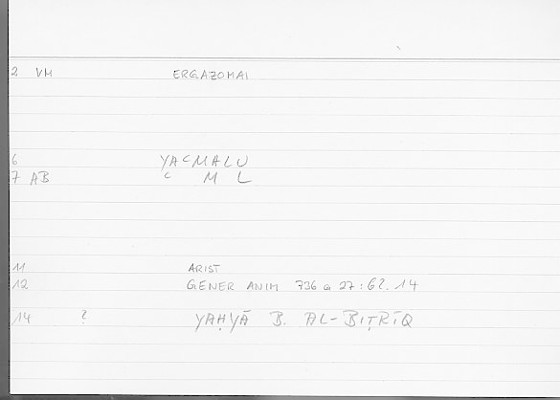 2 VM ERGAZOMAI
6 YAcMALU
7 AB c M L
11 ARIST
12 GENER ANIM 736 a 27 : 62. 14
14 ? YAḤYĀ B. AL-BIṬRĪQ